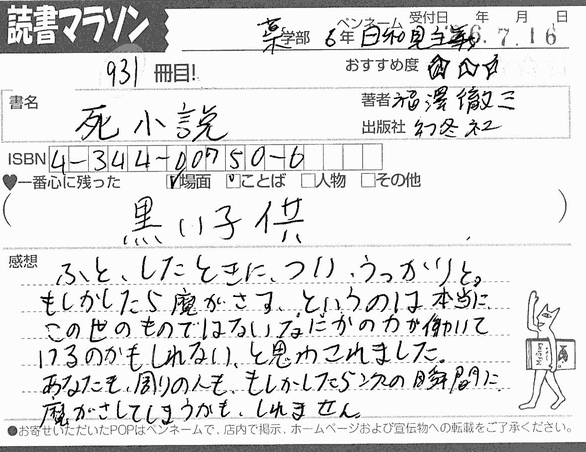 読書マラソン
薬学部 6年 ペンネーム 日和見主義 受付日 年 月 日
6.7.16
931冊目!
おすすめ度 ☆☆☆
書名 死小説
著者 福澤徹三
出版社 幻冬社
ISBN 4-344-00750-6
♥一番心に残った ☑場面 ☑ことば □人物 □その他
( 黒い子供 )
感想
ふと、したときに、つい、うっかりと。
もしかしたら魔がさす、というのは本当に
この世のものではないなにかの力が働いて
いるのかもしれない、と思わされました。
あなたも、周りの人も、もしかしたら次の瞬間に、
魔がさしてしまうかも、しれません。
●お寄せいただいたPOPはペンネームで、店内で掲示、ホームページおよび宣伝物への転載をご了承ください。